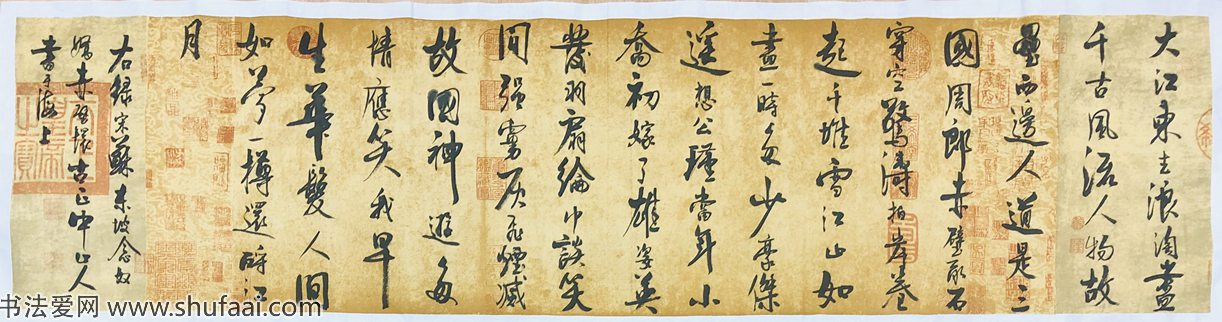 大江東去浪淘盡
千古風流人物故
壘西邊人道是三
國周郎赤壁亂石
穿空驚濤拍岸卷
起千堆雪江山如
畫一時多少豪傑
遙想公瑾當年小
喬初嫁了雄姿英
發羽扇綸巾談笑
間强虜灰飛煙滅
故國神遊多
情應笑我早
生華髮人間
如夢一樽還酹江
月
右録宋蘇東坡念奴
嬌赤壁懷古正中山人
書于海上
书法爱网 www.shufaai.com